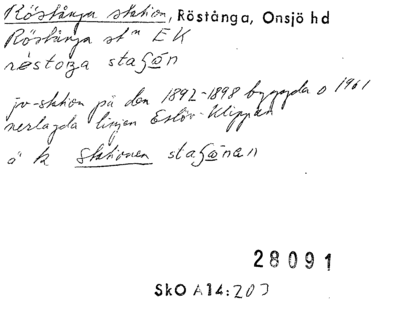 Röstånga station, Röstånga, Onsjö hd
Röstånga stn EK
röstoŋa staʃɷ́n
jv-station på den 1892-1898 byggda o 1961
nerlagda linjen Eslöv-Klippan
o k stationen staʃɷ́nən
28091
SkO A14:203